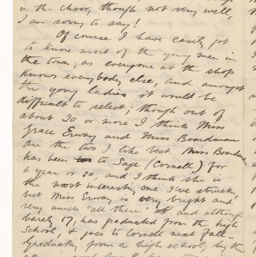 in the choir, though not very well,
I am sorry to say!
Of course I have easily got
to know most of the young men in
the town, as everyone at the shop
knows everybody else, and amongst
the young ladies it would be
difficult to select; though out of
about 30 or more I think Miss
Grace Emay and Miss Boardman
are the two I like best. Miss Boardman
has been to Sage (Cornell) for
a year or so, and I think she is
the most interesting one I've struck
but Miss is very bright and
very much "all there" and although
barely 17, has graduated from the high
School, & goes to Cornell next fall
(graduate, from a high school, by the